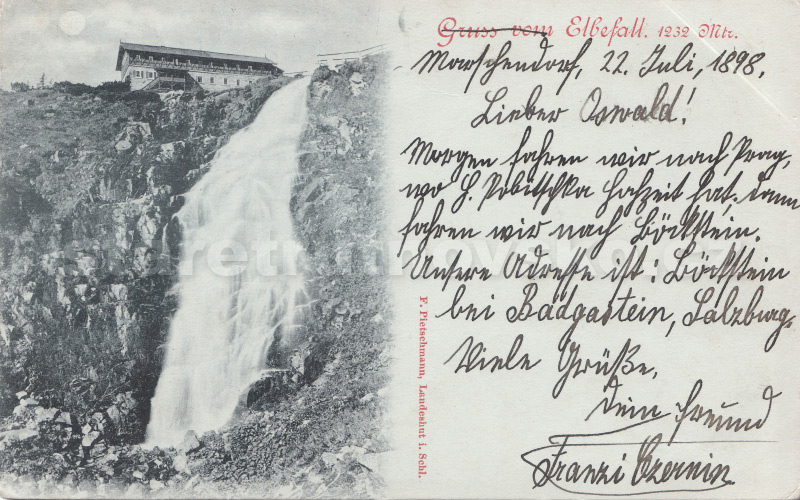 Gruss vom Elbefall. 1232 Mtr.
Marschendorf, 22. Juli, 1898.
Lieber Oswald!
Morgen fahren wir nach Prag,
wo H. Pobitschka Hohzeit hat, dann
fahren wir nach Böckstein.
Unsere Adresse ist: Böckstein
bei Badgastein, Salzburg.
Viele Grüße,
Dein Freund
Franzi Czernin
F. Pietschmann, Landeshut i. Schl.